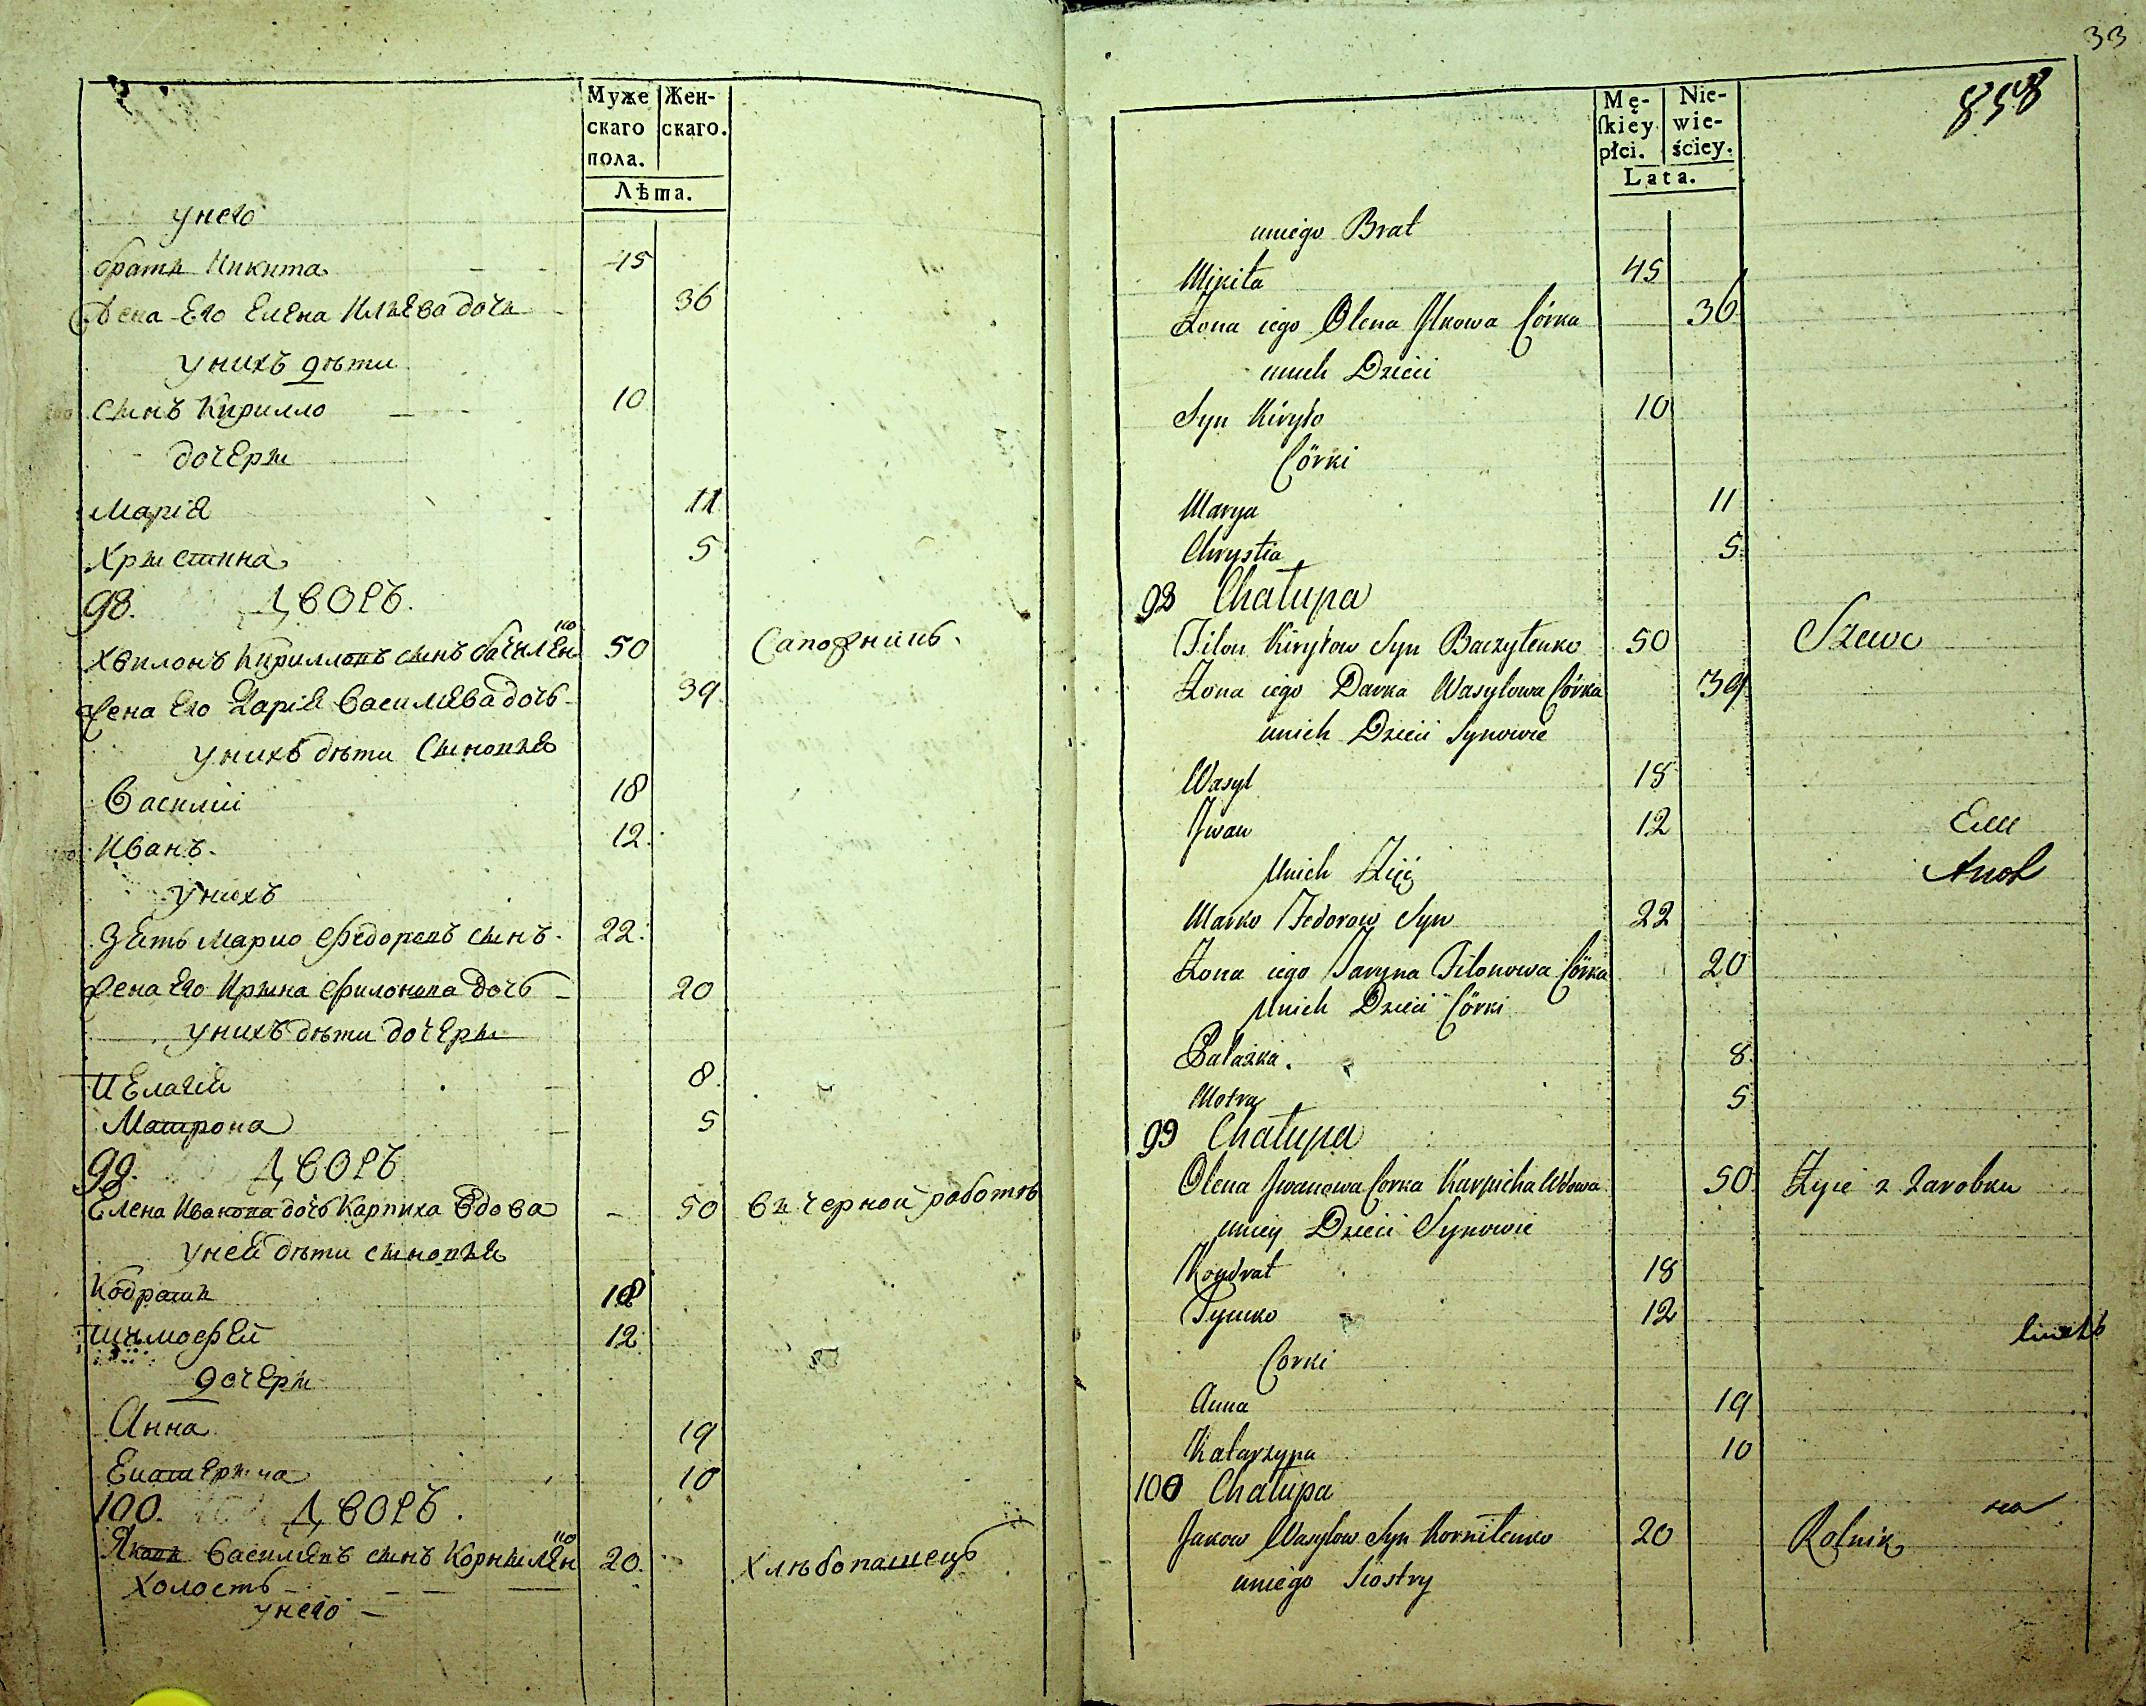 Муже
скаго
пола.
Жен-
скаго.
Лѣта.
у него
братъ Никита 45
Жена Его Елена Ильева дочь 36
у нихъ дѣти
сынъ Кирилло 10
дочери
Марія 11
Христина 5
98. ДВОРЪ.
Хвилонъ Кириловъ сынъ Бачилѣнко 50 Сапожникъ
Жена Его Дарія Васильева дочь 39
у нихъ дѣти Сыновья
Василій 18
Иванъ 12
у нихъ
Зять Марко Федоровъ сынъ 22
Жена Его Ирына Филонова дочь 20
у нихъ дѣти дочеры
Пелагія 8
Матрона 5
99. ДВОРЪ
Елена Иванова дочь Карпиха Вдова - 50 въ черной работѣ
у ней дѣти сыновья
Кодратъ 18
Тимофей 12
дочеры
Анна 19
Екатерына 10
100. ДВОРЪ.
Яковъ Васильевъ сынъ Корнылѣнко 20 Хлѣбопашецъ
Холостъ
у него
33
858
Mę-
ſkiey
płci.
Nie-
wie-
ściey.
Lata.
uniego Brat
Mikita 45
Żona iego Olena Jlkowa Córka 36
unich Dzieci
Syn Kiryło 10
Córki
Marya 11
Chrystia 5
98 Chałupa
Filon Kiryłow Syn Baczyłenko 50 Szewc
Żona iego Darka Wasylowa Córka 39
unich Dzieci Synowie
Wasyl 18
Jwan 12
Unich Zięć
Marko Fedorow Syn 22
Żona iego Jaryna Filonowa Córka 20
Unich Dzieci Córki
Pałażka. 8
Motra 5
99 Chałupa
Olena Jwanowa Corka Karpicha Wdowa 50 Żyie z Zarobku
uniey Dzieci Synowie
Kondrat 18
Tymko 12
Corki
Anna 19
Katarzyna 10
100 Chałupa
Jakow Wasylow Syn Korniłenko 20 Rolnik
uniego Siostry